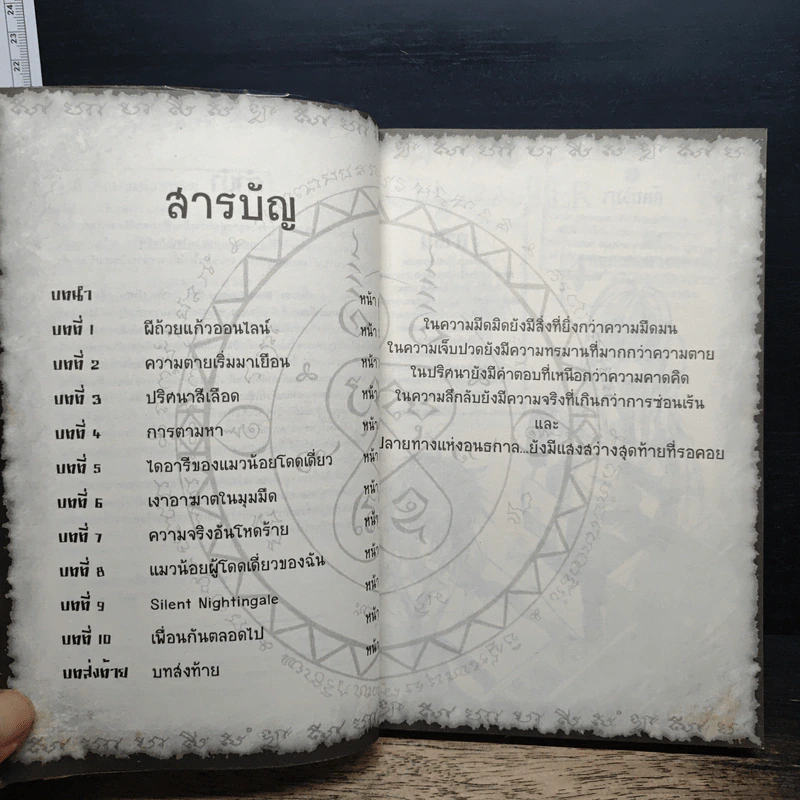 สารบัญ
บทนำ หน้า
บทที่ 1 ผีถ้วยแก้วออนไลน์ หน้า
บทที่ 2 ความตายเริ่มมาเยือน หน้า
บทที่ 3 ปริศนาสีเลือด หน้า
บทที่ 4 การตามหา หน้า
บทที่ 5 ไดอารีของแมวน้อยโดดเดี่ยว หน้า
บทที่ 6 เงาอาฆาตในมุมมืด หน้า
บทที่ 7 ความจริงอันโหดร้าย หน้า
บทที่ 8 แมวน้อยผู้โดดเดี่ยวของฉัน หน้า
บทที่ 9 Silent Nightingale หน้า
บทที่ 10 เพื่อนกันตลอดไป หน้า
บทส่งท้าย บทส่งท้าย หน้า
ในความมืดมิดยังมีสิ่งที่ยิ่งกว่าความมืดมน
ในความเจ็บปวดยังมีความทรมานที่มากกว่าความตาย
ในปริศนายังมีคำตอบที่เหนือกว่าความคาดคิด
ในความลึกลับยังมีความจริงที่เกินกว่าการซ่อนเร้น
และ
ปลายทางแห่งอนธกาล...ยังมีแสงสว่างสุดท้ายที่รอคอย
24
23
22